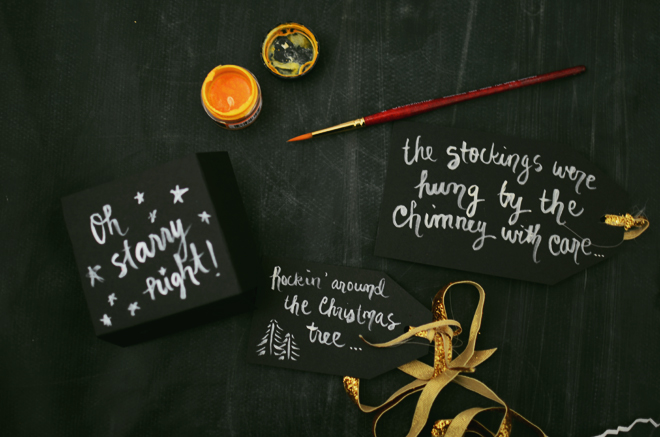 Oh
starry
night!
the stockings were
hung by the
chimney with care...
Rockin' around
the Christmas
tree...